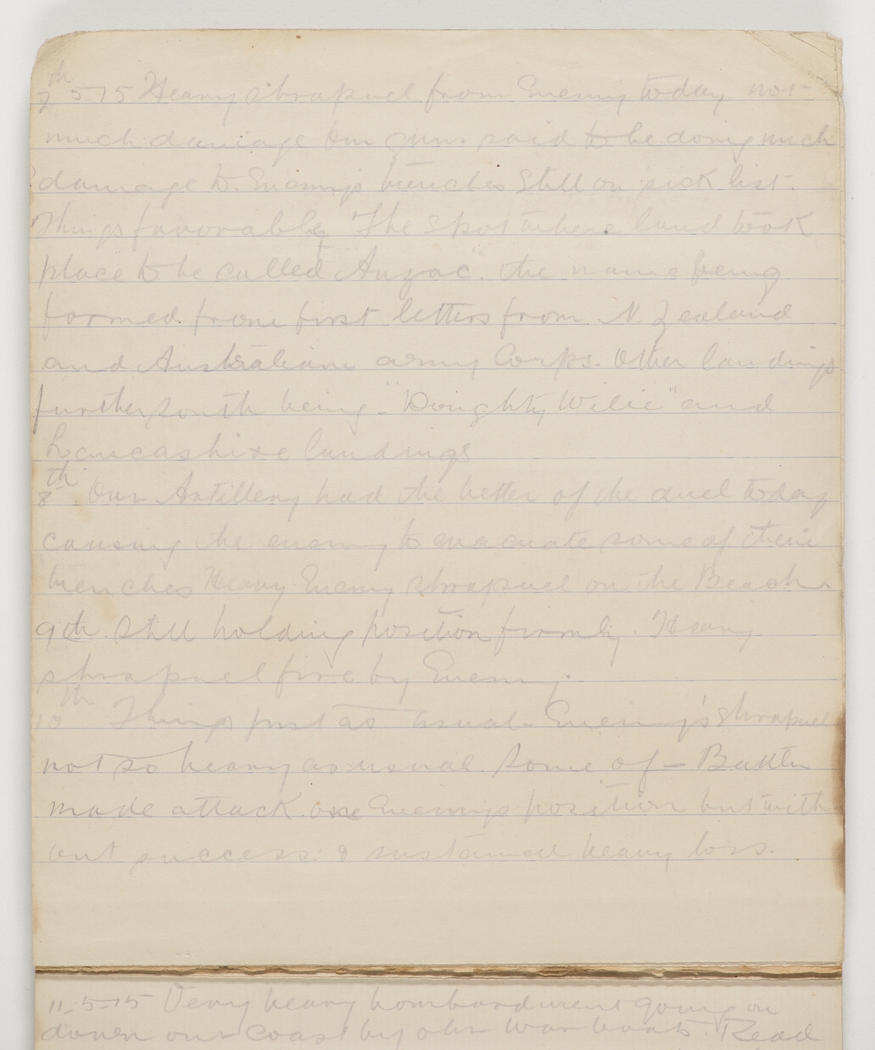 7th 5-15 Heavy shrapnel from Enemy today not
much damage Our guns said to be doing much
damage to Enemys trenches Still on sick list.
Things favorably The spot where land took
place to be called "Anzac". the name being
formed from first letters from N. Zealand
and Australian army Corps. Other landings
further south being "Doughty Wilie" and
Lancashire landings
8th. Our Artillery had the better of the duel today
causing the enemy to evacuate some of their
trenches Heavy Enemy shrapnel on the Beach.
9th. Still holding position firmly. Heavy
shrapnel fire by Enemy.
10th Things just as usual. Enemy's shrapnel
not so heavy as usual Some of — Battn
made attack one Enemys position but with
out success. & sustained heavy loss.
11-5-15 Very heavy bombardment going on
down our coast by our war boats. Read